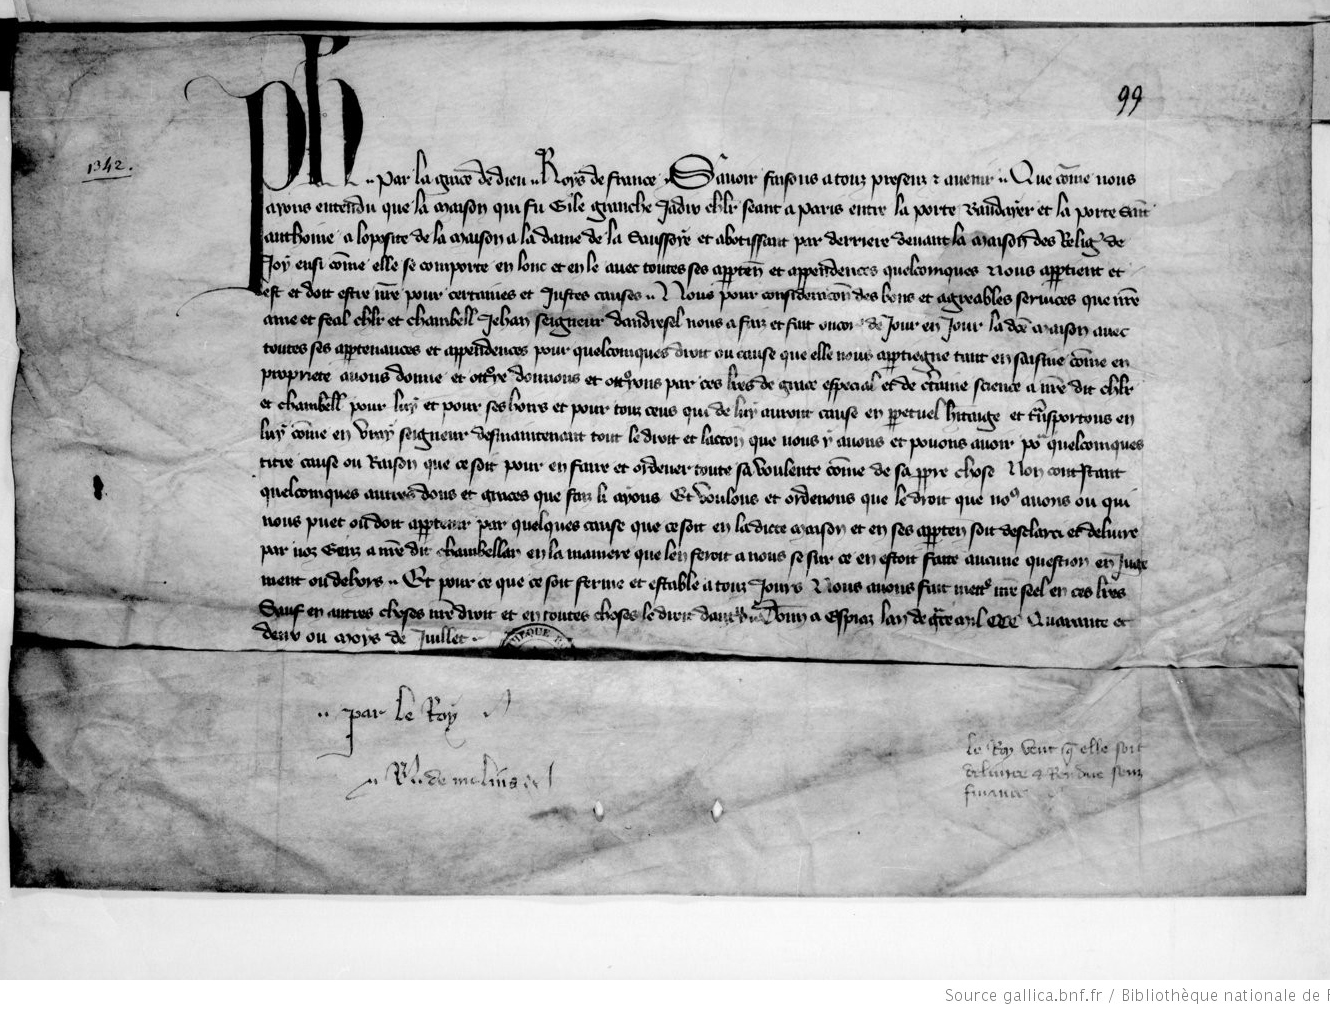 99
1342.
Ph par la grace de dieu Roys de france Savoir faisons a touz presenz & avenir Que come nous
ayons entendu que la maison qui fu Gile granche Jadix chlr seant a paris entre la porte Baudayer et la porte saint
anthoine a loposite de la maison a la dame de la Saussoye et aboutissant par derriere devant la maison des Relig de
Joy ensi come elle se comporte en lonc et en le avec toutes ses apparten et appendences quelconques Nous appartient et
est et doit estre nre pour certaines et Justes causes Nous pour consideracon des bons et agreables services que nre
ame et feal chlr et chambell Jehan seigneur dandresel nous a faiz et fait encor de Jour en Jour la dce maison avec
toutes ses appartenances et appendences pour quelconques droit ou cause que elle nous appartiegne tant en saisine come en
propriete avons donne et ottroye donnons et ottroyons par ces lres de grace especial et de certaine science a nre dit chlr
et chambell pour luy et pour ses hoirs et pour touz ceus qui de luy auront cause en perpetuel heritage et transportons en
luy come en vray seigneur desmaintenant tout le droit et laccon que nous y avons et povons avoir por quelconques
titre cause ou Raison que ce soit pour en faire et ordener toute sa voulente come de sa propre chose Non contrestant
quelconques autres dons et graces que faiz li ayons Et voulons et ordenons que le droit que nous avons ou qui
nous puet ou doit appartenir par quelques cause que ce soit en la dicte maison et en ses apparten soit desclarci et delivre
par noz genz a nre dit chambellan en la maniere que len feroit a nous se sur ce en estoit faite aucune question en Juge
ment ou dehors Et pour ce que ce soit ferme et estable a touz Jours Nous avons fait mettre nre seel en ces lres
Sauf en autres choses nre droit et en toutes choses le droit dautruy Donn a Espiaz lan de grace mil CCC Quarante et
deux ou moys de Juillet
par le Roy
R. de molins
le Roy veut q elle soit
delivree & Rendue sanz
finance
Source gallica.bnf.fr / Bibliothèque nationale de F